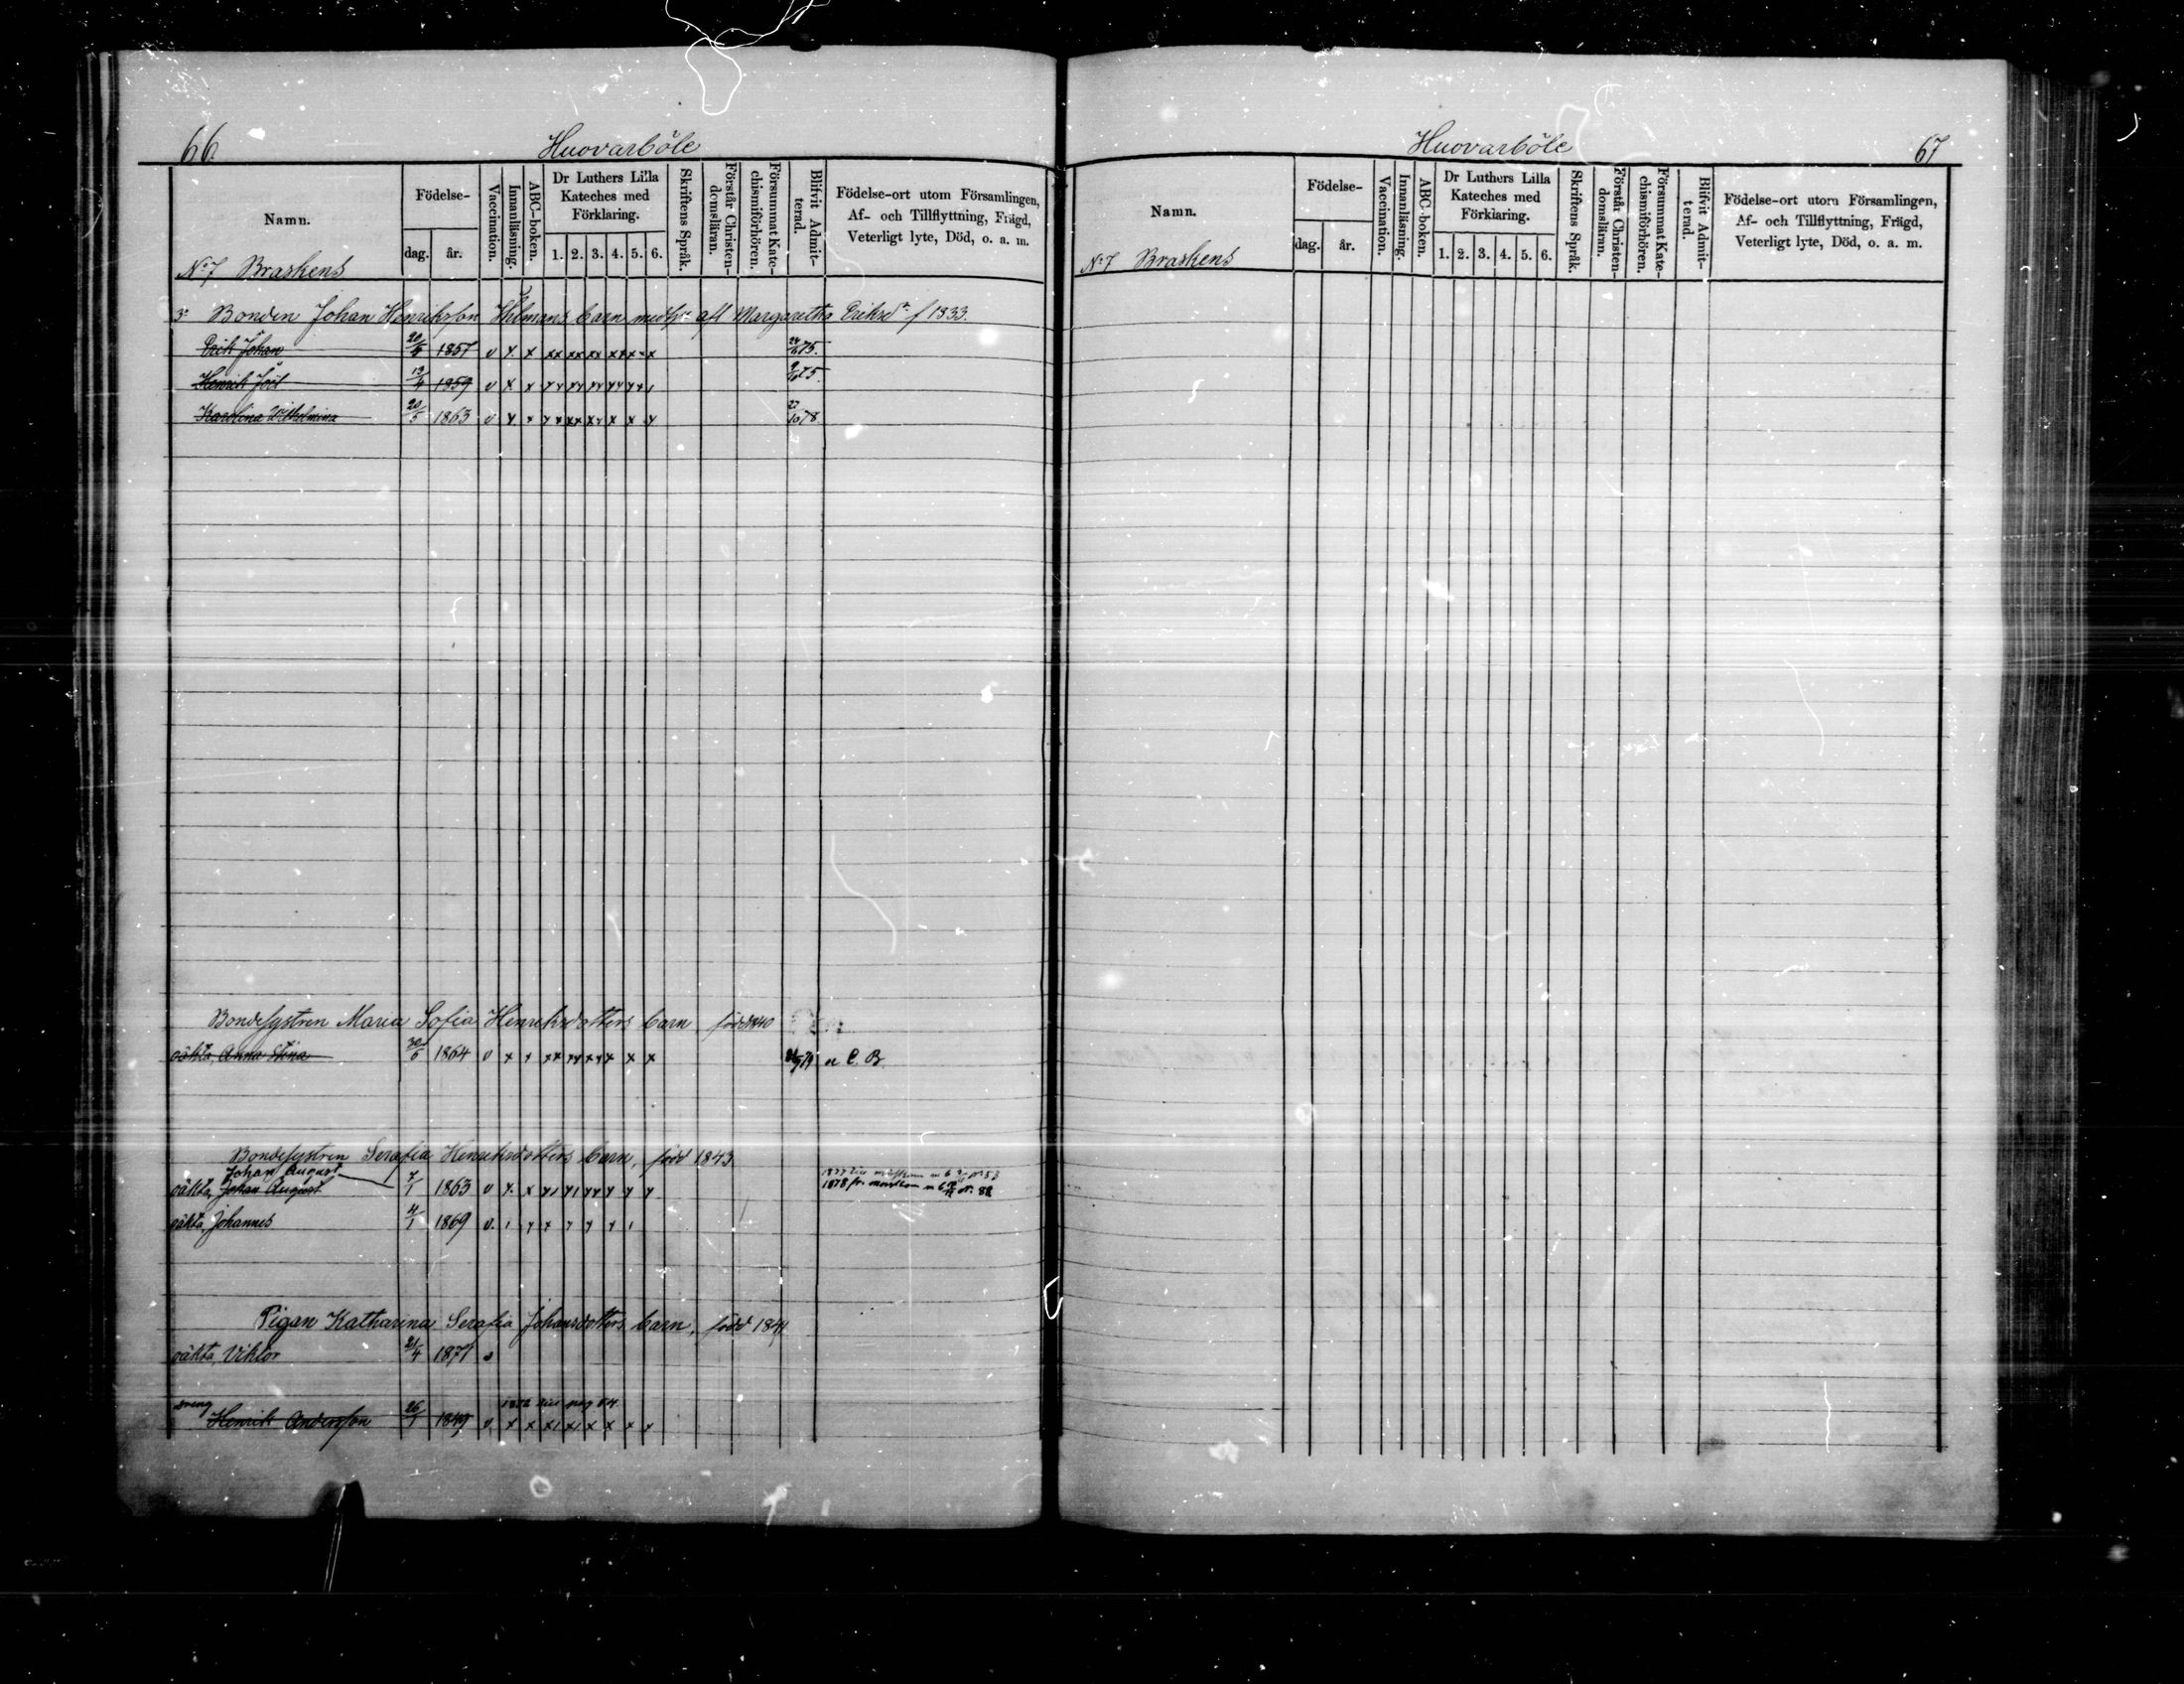 66
Huovarböle
Namn.
Födelse-
dag.
år.
Vaccination.
Innanläsning.
ABC-boken.
Dr Luthers Lilla
Kateches med
Förklaring.
1. 2. 3. 4. 5. 6.
Skriftens Språk.
Förstår Christen-
domsläran.
Försummat Kate-
chismiförhören.
Blifvit Admit-
terad.
Födelse-ort utom Församlingen,
Af- och Tillflyttning, Frägd,
Veterligt lyte, Död, o. a. m.
No 7 Braskens
Bonden Johan Henriksson barn med afl Margaretha Eriksdr f 1833.
Erik Johan 1857 v x x xx xx xx xx x x 75.
Henrik 13/4 1859 v x x 75
Karolina Wilhelmina 20/5 1863 v 78
Bondesystren Maria Sofia Henriksdotters barn född 1840
oäkta, Anna Stina 30/6 1864 v x x xx x x 79 C. B.
Bondesystren Serafia Henriksdotters barn, född 1843
Johan August
oäkta, Johan August 7/1 1863 v 1877
1878 88
oäkta, Johannes 4/1 1869 v.
Pigan Katharina Serafia Johansdotters barn, född 1841
oäkta, Viktor 21/4 1871
dreng Henrik Andersson 26/1 1849 v x x
Huovarböle
67
Namn.
Födelse-
dag.
år.
Vaccination.
Innanläsning.
ABC-boken.
Dr Luthers Lilla
Kateches med
Förklaring.
1. 2. 3. 4. 5. 6.
Skriftens Språk.
Förstår Christen-
domsläran.
Försummat Kate-
chismiförhören.
Blifvit Admit-
terad.
Födelse-ort utom Församlingen,
Af- och Tillflyttning, Frägd,
Veterligt lyte, Död, o. a. m.
No 7 Braskens